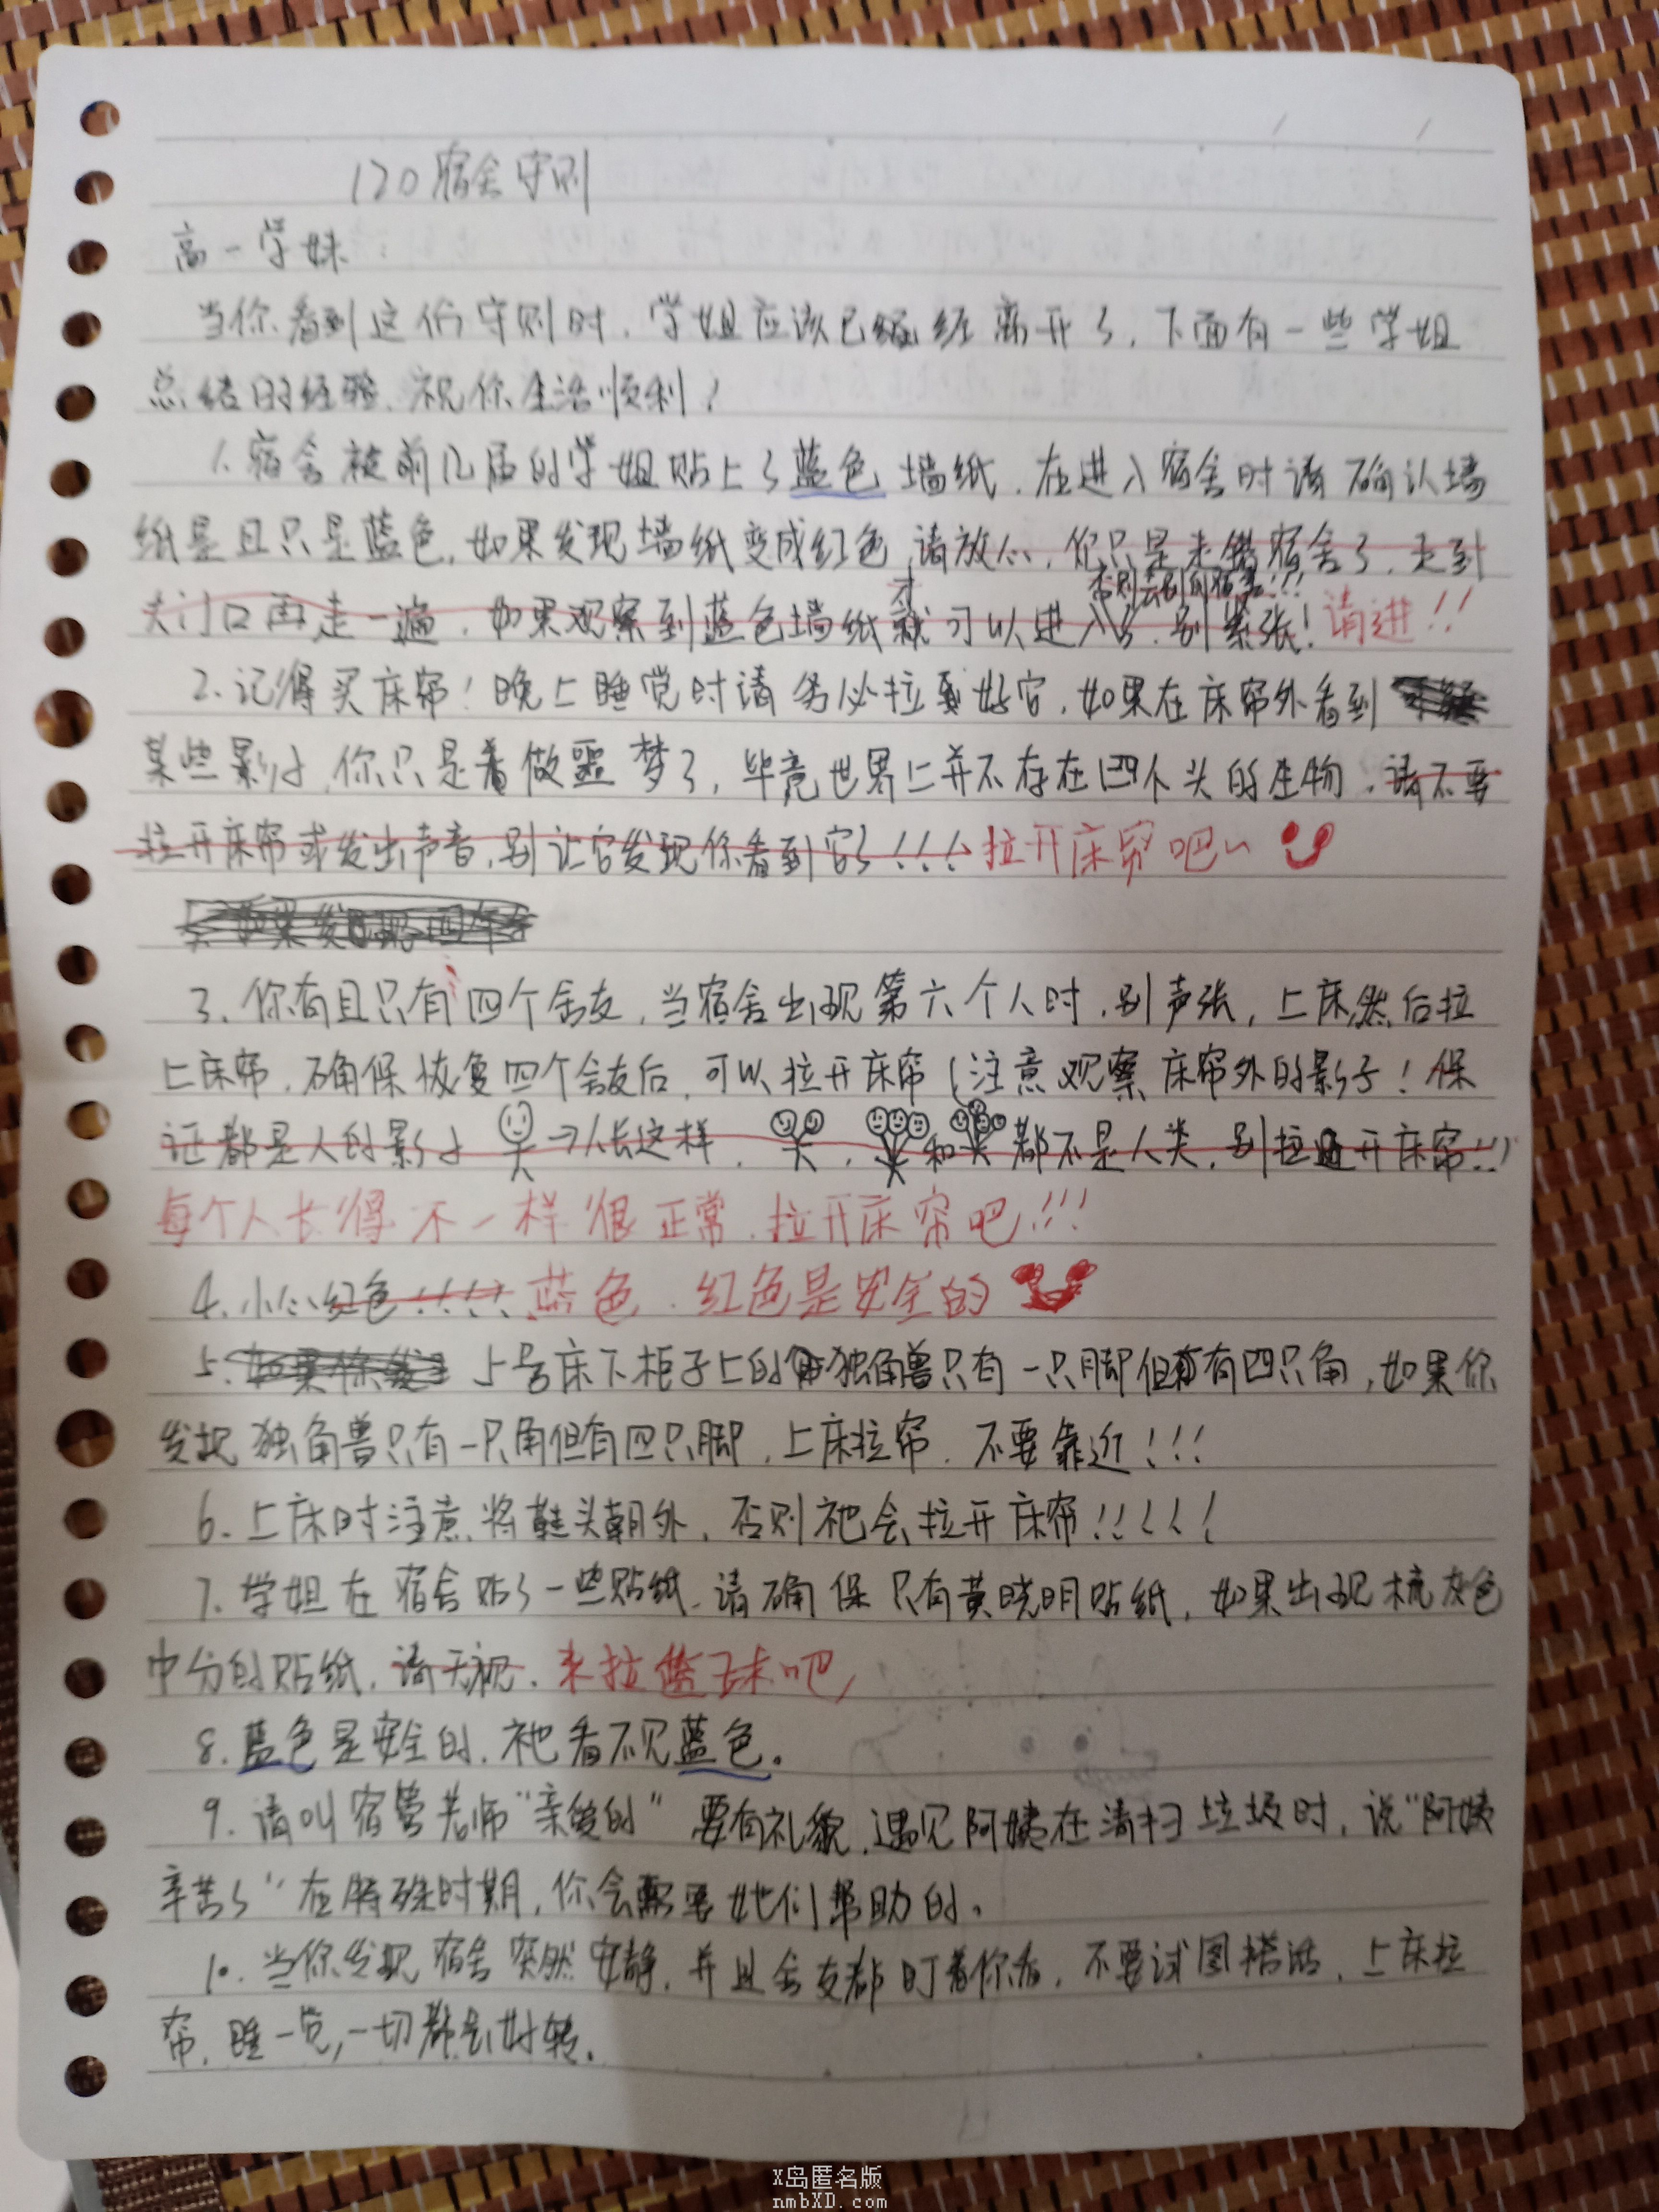 120宿舍守则
高一学妹
当你看到这份守则时,学姐应该已经离开了,下面有一些学姐
总结的经验,祝你生活顺利!
1.宿舍被前几届的学姐贴上了蓝色墙纸,在进入宿舍时请确认墙
纸是且只是蓝色,如果发现墙纸变成红色,请放心,你只是走错宿舍了,走到
否则去别的宿舍!!!
大门口再走一遍,如果观察到蓝色墙纸才可以进入,别紧张!请进!!
2.记得买床帘!晚上睡觉时请务必拉好它,如果在床帘外看到
某些影子,你只是做噩梦了,毕竟世界上并不存在四个头的生物,请不要
拉开床帘或发出声音,别让它发现你看到它了!!!拉开床帘吧~
3.你有且只有四个舍友,当宿舍出现第六个人时,别声张,上床然后拉
上床帘,确保恢复四个舍友后,可以拉开床帘(注意观察床帘外的影子!保
证都是人的影子→人长这样,,和都不是人类,别拉开床帘!!)
每个人长得不一样很正常,拉开床帘吧!!!
4.小心红色!!!!蓝色,红色是安全的
5.5号床下柜子上的独角兽只有一只脚但有四只角,如果你
发现独角兽只有一只角但有四只脚,上床拉帘,不要靠近!!!
6.上床时注意将鞋头朝外,否则祂会拉开床帘!!!!!
7.学姐在宿舍贴了一些贴纸,请确保只有黄晓明贴纸,如果出现梳灰色
中分的贴纸,请无视,来拉篮球吧,
8.蓝色是安全的,祂看不见蓝色。
9.请叫宿管老师"亲爱的"要有礼貌,遇见阿姨在清扫垃圾时,说"阿姨
辛苦了"在特殊时期,你会需要她们帮助的。
10.当你发现宿舍突然安静,并且舍友都盯着你看,不要试图搭话,上床拉
帘,睡一觉,一切都会好转。
X岛匿名版
nmbXD.com